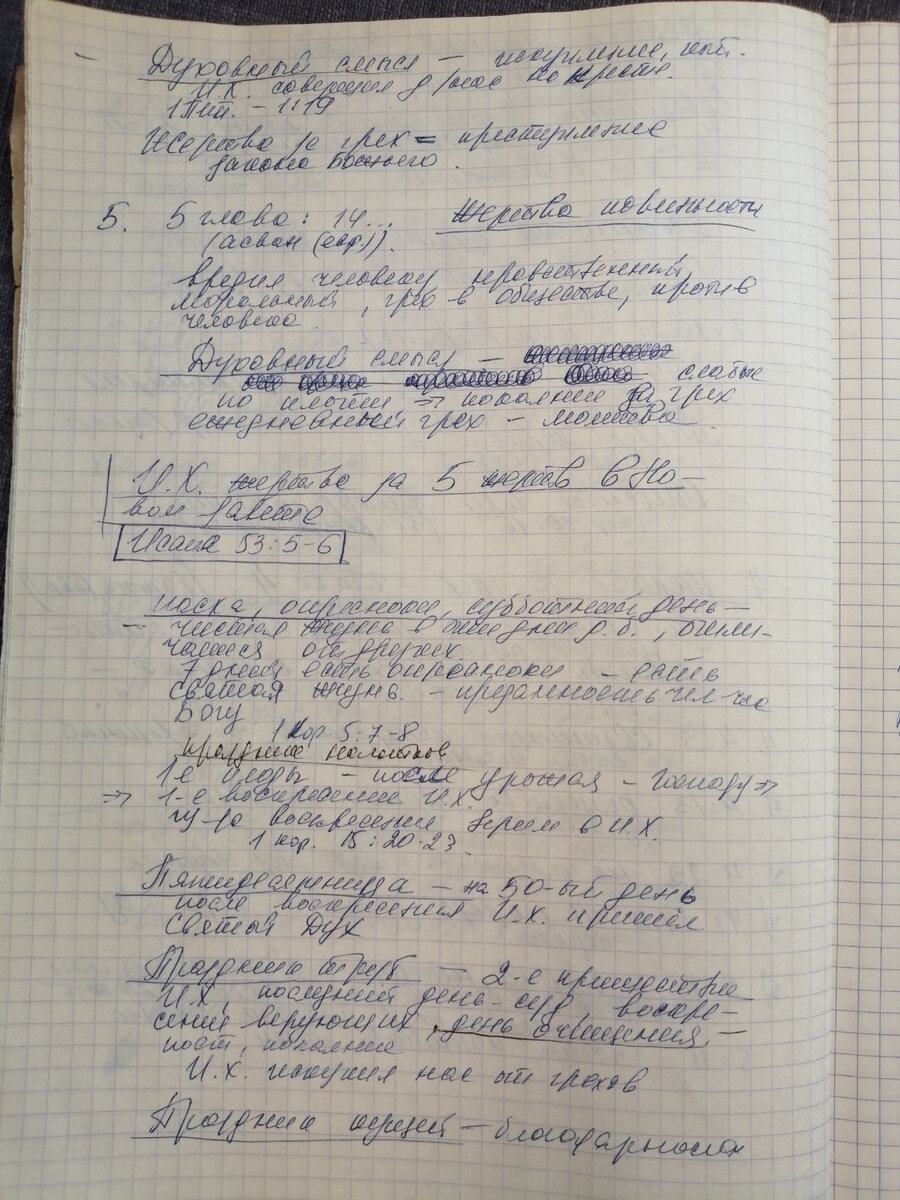 Духовный смысл — искупление, кот.
И.Х. совершил для нас на кресте.
1 Пет. – 1:19
Жертва за грех = преступление
закона Божьего.
5. 5 глава: 14... Жертва повинности
(асвам (евр.)).
вредил человеку нравственный,
моральный, грех в обществе, против
человека.
Духовный смысл —
слабые
по плоти => покаяние за грех
ежедневный грех – молитва
И.Х. жертва за 5 жертв в Но-
вом завете
Исаия 53:5-6
пасха, опресноки, субботний день —
– чистая жизнь в ежедневн. р.б., очища-
от
7 дней есть опресноки – есть
святая жизнь. – преданность чел-ка
Богу
1 Кор. 5:7-8
праздник начатков
1-е плоды – после урожая – Господу =>
=> 1-е воскресение И.Х.
из-за воскресения верим в И.Х.
1 кор. 15:20-23
Пятидесятница – на 50-ый день
после воскресения И.Х. пришёл
Святой Дух
Праздник труб — 2-е пришествие
И.Х., последний день – суд, воскре-
сение верующих, день очищения –
пост, покаяние
И.Х. искупил нас от грехов
Праздник кущей – благодарность